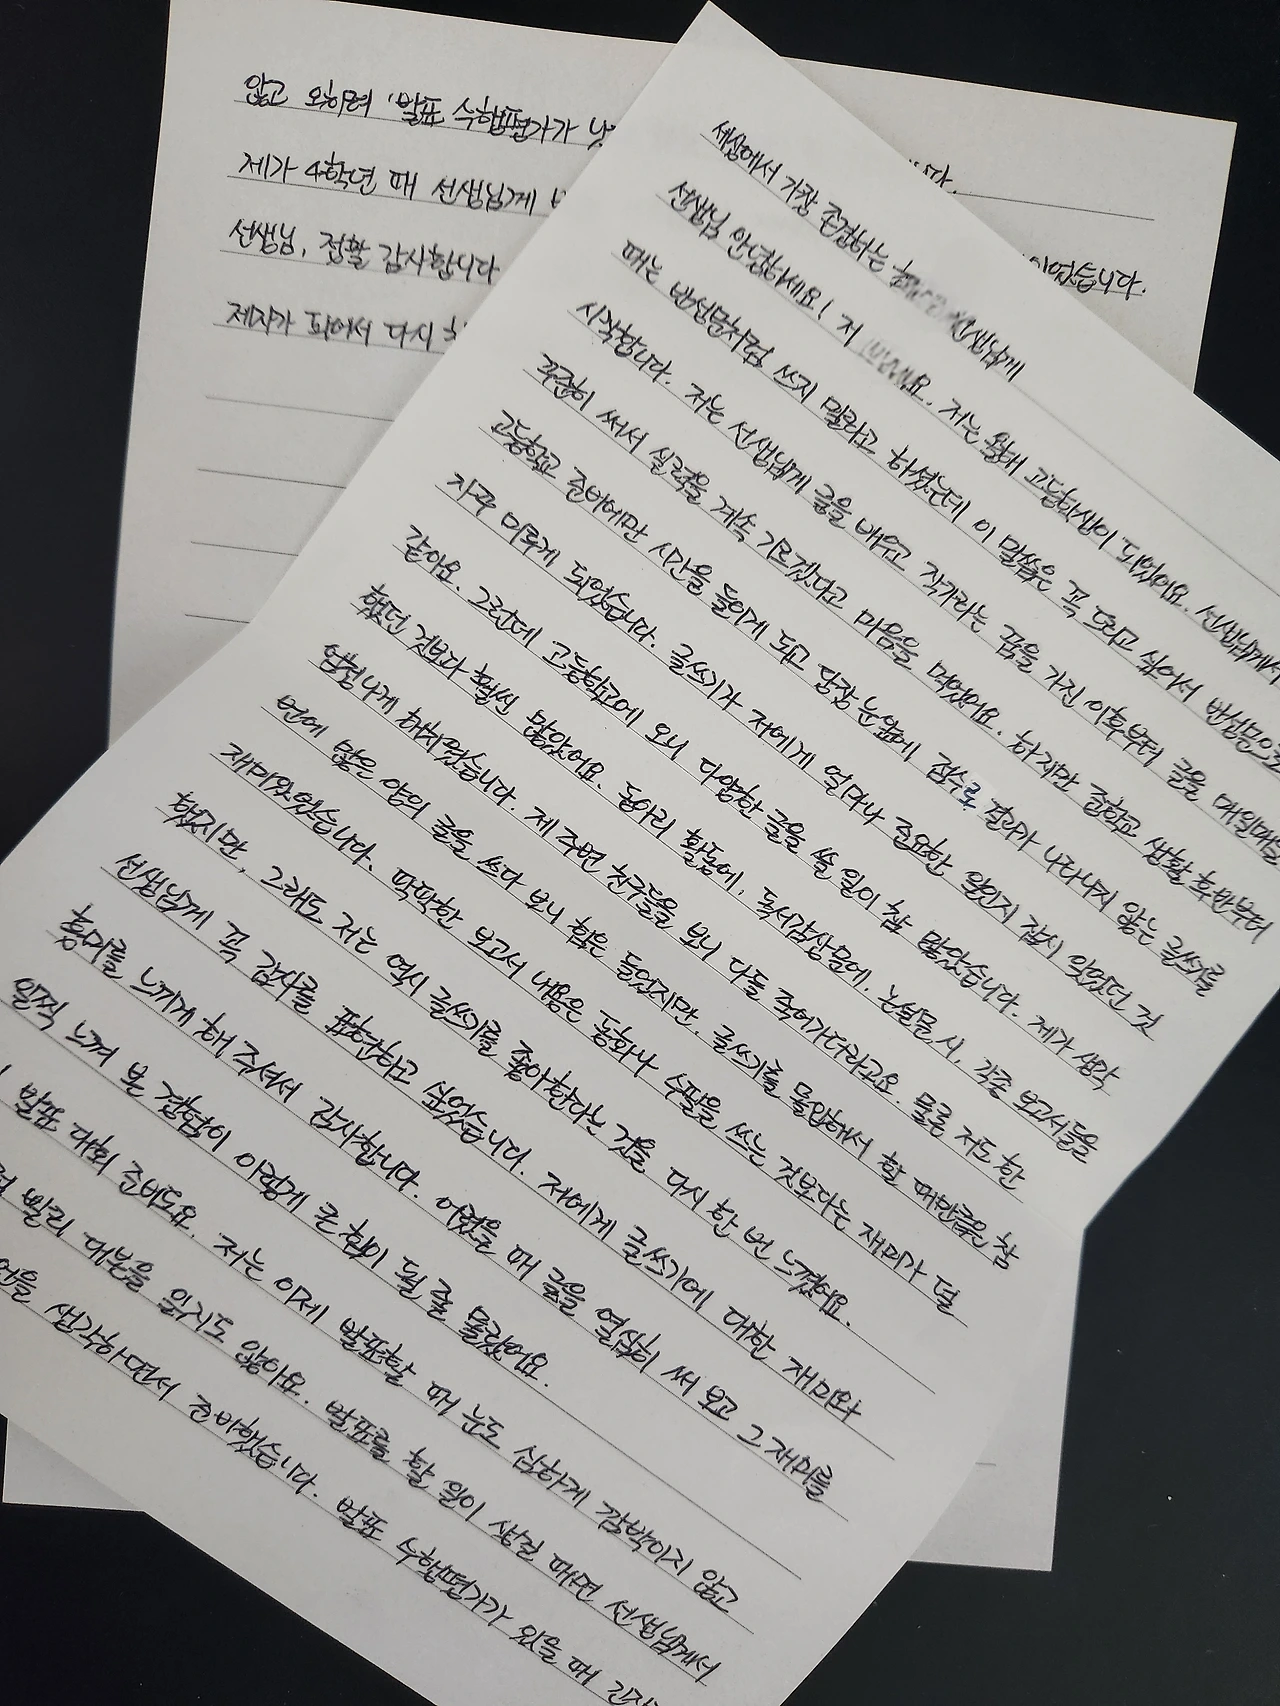 세상에서 가장 존경하는 선생님께
선생님 안녕하세요! 저 요. 저는 올해 고등학생이 되었어요. 선생님께서
때는 반성문처럼 쓰지 말라고 하셨는데 이 말씀은 꼭 드리고 싶어서 반성문으로
시작합니다. 저는 선생님께 글을 배우고 작가라는 꿈을 가진 이후부터 글을 매일매일
꾸준히 써서 실력을 계속 기르겠다고 마음을 먹었어요. 하지만 중학교 생활 후반부터
고등학교 준비에만 시간을 들이게 되고 당장 눈앞에 점수로 결과가 나타나지 않는 글쓰기를
자꾸 미루게 되었습니다. 글쓰기가 저에게 얼마나 중요한 일인지 잠시 잊었던 것
같아요. 그런데 고등학교에 오니 다양한 글을 쓸 일이 참 많았습니다. 제가 생각
했던 것보다 훨씬 많았어요. 동아리 활동에, 독서감상문에, 논설문, 시, 각종 보고서들을
엄청나게 해치웠습니다. 제 주변 친구들을 보니 다들 죽어가더라고요. 물론 저도 한
번에 많은 양의 글을 쓰다 보니 힘은 들었지만, 글쓰기를 몰입해서 할 때만큼은 참
재미있었습니다. 딱딱한 보고서 내용은 동화나 수필을 쓰는 것보다는 재미가 덜
했지만, 그래도 저는 역시 글쓰기를 좋아한다는 것을 다시 한 번 느꼈어요.
선생님께 꼭 감사를 표현하고 싶었습니다. 저에게 글쓰기에 대한 재미와
흥미를 느끼게 해 주셔서 감사합니다. 어렸을 때 글을 열심히 써 보고 그 재미를
일찍 느껴 본 경험이 이렇게 큰 힘이 될 줄 몰랐어요.
발표 대회 준비도요. 저는 이제 발표할 때 눈도 심하게 깜박이지 않고
빨리 대본을 읽지도 않아요. 발표를 할 일이 생길 때면 선생님께서
생각하면서 준비했습니다. 발표 수행평가가 있을 때
않고 오히려 '발표 수행평가가
제가 4학년 때 선생님께
이었습니다.
선생님, 정말 감사합니다
제자가 되어서 다시